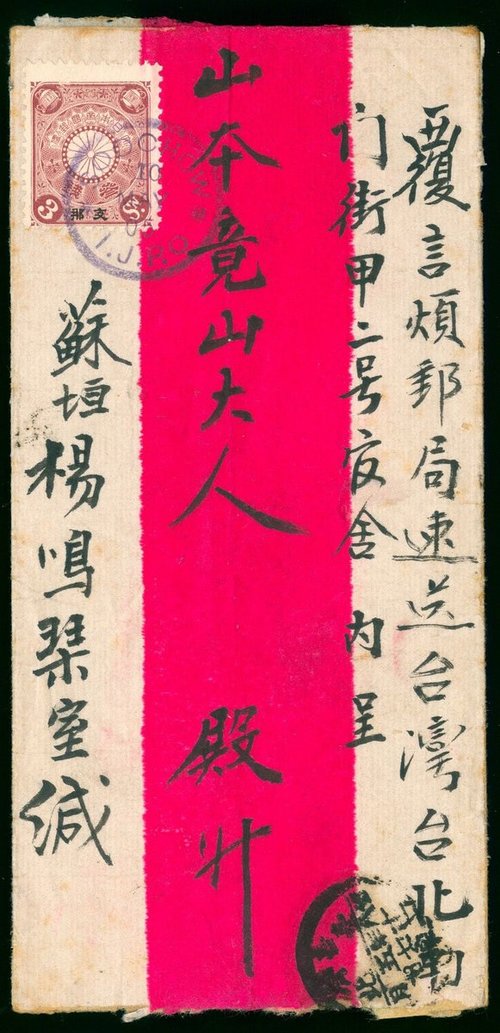 覆言煩郵局速送台灣台北南
门街甲二号官舍 内呈
山本竟山大人 殿升
蘇垣楊鳴琴室緘
支那
3 3
I.J.P.O.